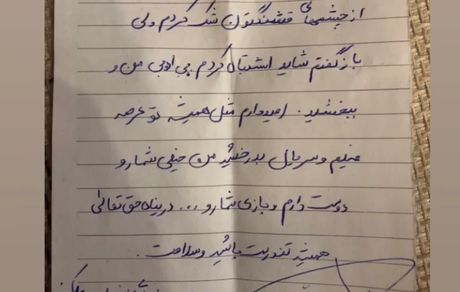 از چشمهای قشنگتون شک کردم ولی
بازگفتم شاید اشتباه کردم بی ادبی من و
ببخشید. امیدوارم مثل همیشه تو عرصه
فیلم و سریال بدرخشید من خیلی شمارو
دوست دارم و بازی شمارو... درپناه حق تعالی
همیشه تندرست باشید و سلامت.